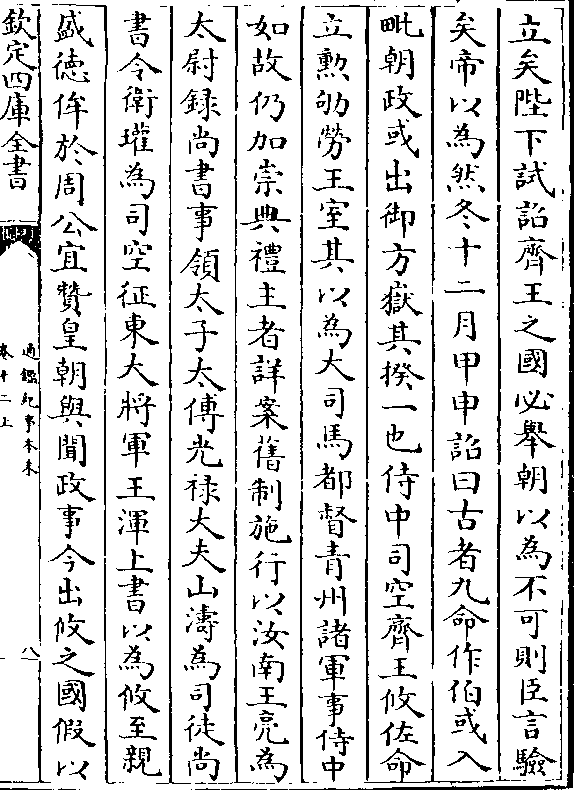 立矣陛下試詔齊王之國必舉朝以為不可則臣言驗
矣帝以為然冬十二月甲申詔曰古者九命作伯或入
毗朝政或出御方嶽其揆一也侍中司空齊王攸佐命
立勲劬勞王室其以為大司馬都督青州諸軍事侍中
如故仍加崇典禮主者詳案舊制施行以汝南王亮為
太尉録尚書事領太子太傅光祿大夫山濤為司徒尚
書令衛瓘為司空征東大將軍王渾上書以為攸至親
盛德侔於周公宜贊皇朝與聞政事今出攸之國假以
欽定四庫全書
通鑑紀事本末
卷十二上
八